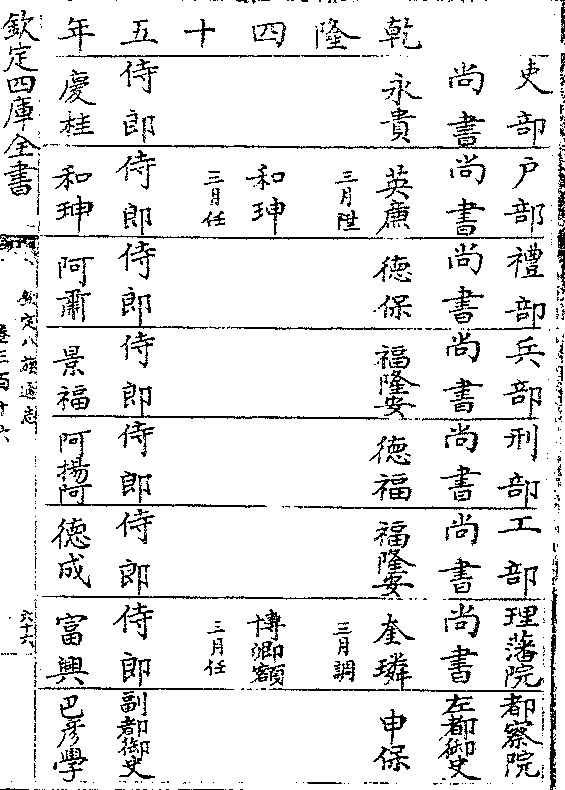 乾隆四十五年
吏部 户部 禮部 兵部 刑部 工部 理藩院 都察院
尚書 尚書 尚書 尚書 尚書 尚書 尚書 左都御史
永貴 英廉 德保 福隆安 德福 福隆安 奎璘 申保
三月陞 三月調
和珅 博卿額
三月任 三月任
侍郎 侍郎 侍郎 侍郎 侍郎 侍郎 侍郎 副都御史
慶桂 和珅 阿肅 景福 阿揚阿 德成 富興 巴彦學
欽定四庫全書
欽定八旗通志
卷三百十六
六十六